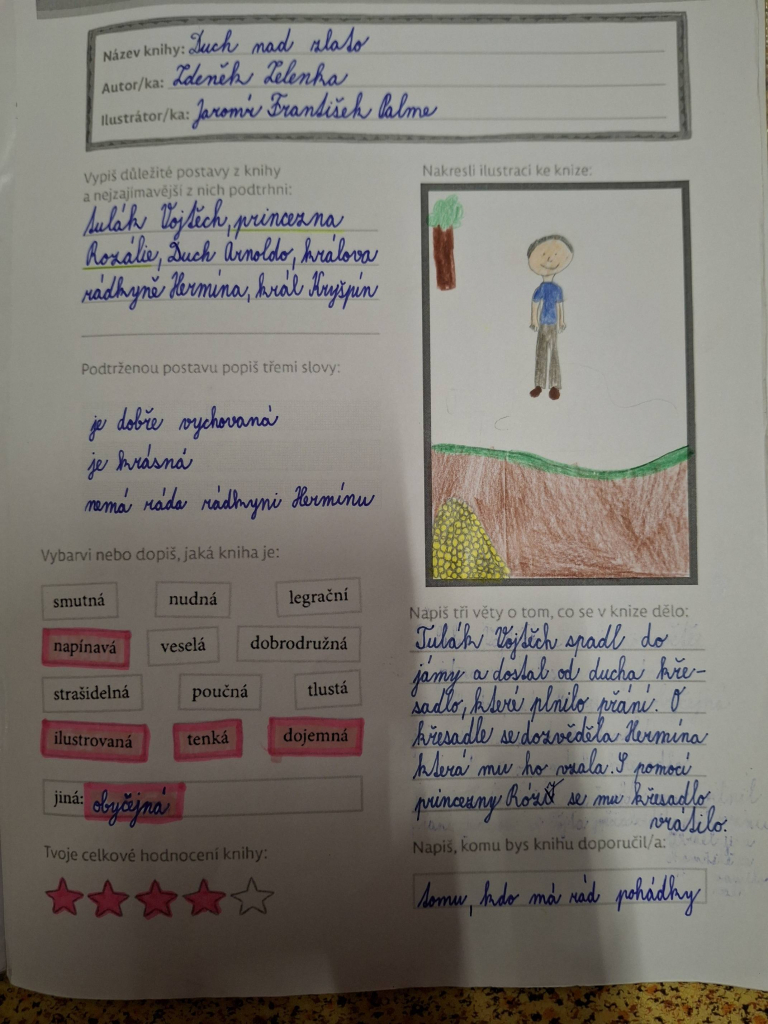 Název knihy: Duch nad zlato
Autor/ka: Zdeněk Zelenka
Ilustrátor/ka: Jaromír František Palme
Vypiš důležité postavy z knihy
a nejzajímavější z nich podtrhni:
tulák Vojtěch, princezna
Rozálie, Duch Arnoldo, králova
rádkyně Hermína, král Kryšpín
Podtrženou postavu popiš třemi slovy:
je dobře vychovaná
je krásná
nemá ráda rádkyni Hermínu
Vybarvi nebo dopiš, jaká kniha je:
smutná nudná legrační
napínavá veselá dobrodružná
strašidelná poučná tlustá
ilustrovaná tenká dojemná
jiná: obyčejná
Tvoje celkové hodnocení knihy:
Nakresli ilustraci ke knize:
Napiš tři věty o tom, co se v knize dělo:
Tulák Vojtěch spadl do
jámy a dostal od ducha kře-
sadlo, které plnilo přání. O
křesadle se dozvěděla Hermína
která mu ho vzala. S pomocí
princezny se mu křesadlo
vrátilo.
Napiš, komu bys knihu doporučil/a:
tomu, kdo má rád pohádky